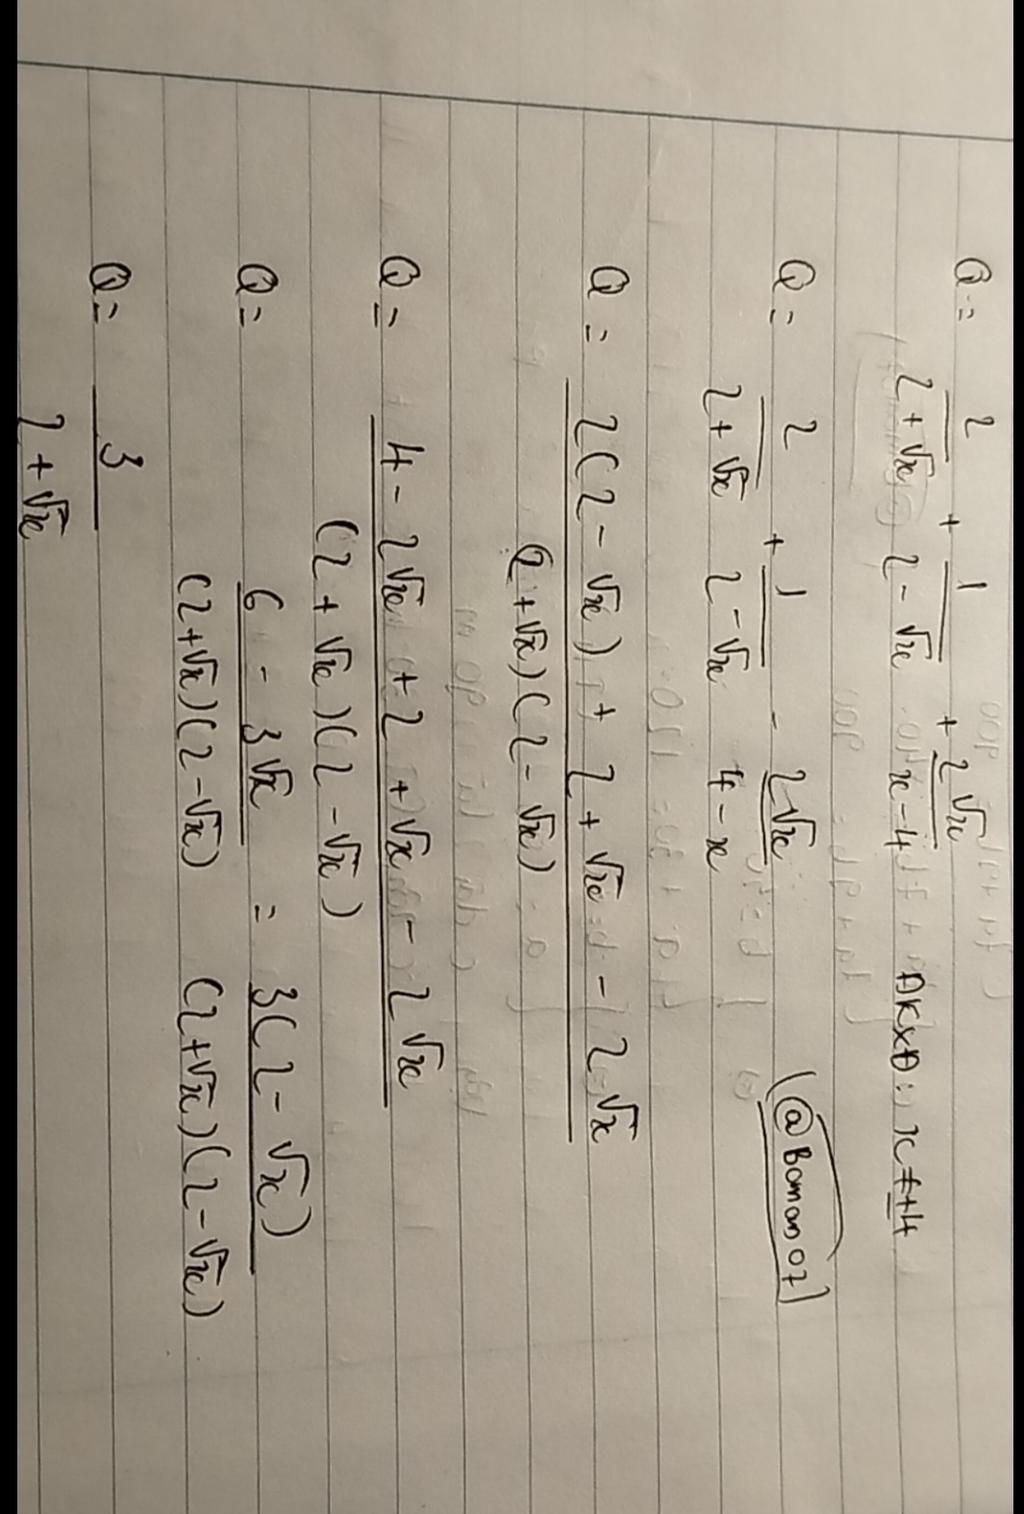 Q = 2/(2+√x) + 1/(2-√x) + 2√x/(x-4) ĐKXĐ: x ≠ 4
Q = 2/(2+√x) + 1/(2-√x) - 2√x/(4-x) (@Boman07)
Q = (2(2-√x) + 2+√x - 2√x)/((2+√x)(2-√x))
Q = (4-2√x + 2 + √x - 2√x)/((2+√x)(2-√x))
Q = (6 - 3√x)/((2+√x)(2-√x)) = 3(2-√x)/((2+√x)(2-√x))
Q = 3/(2+√x)